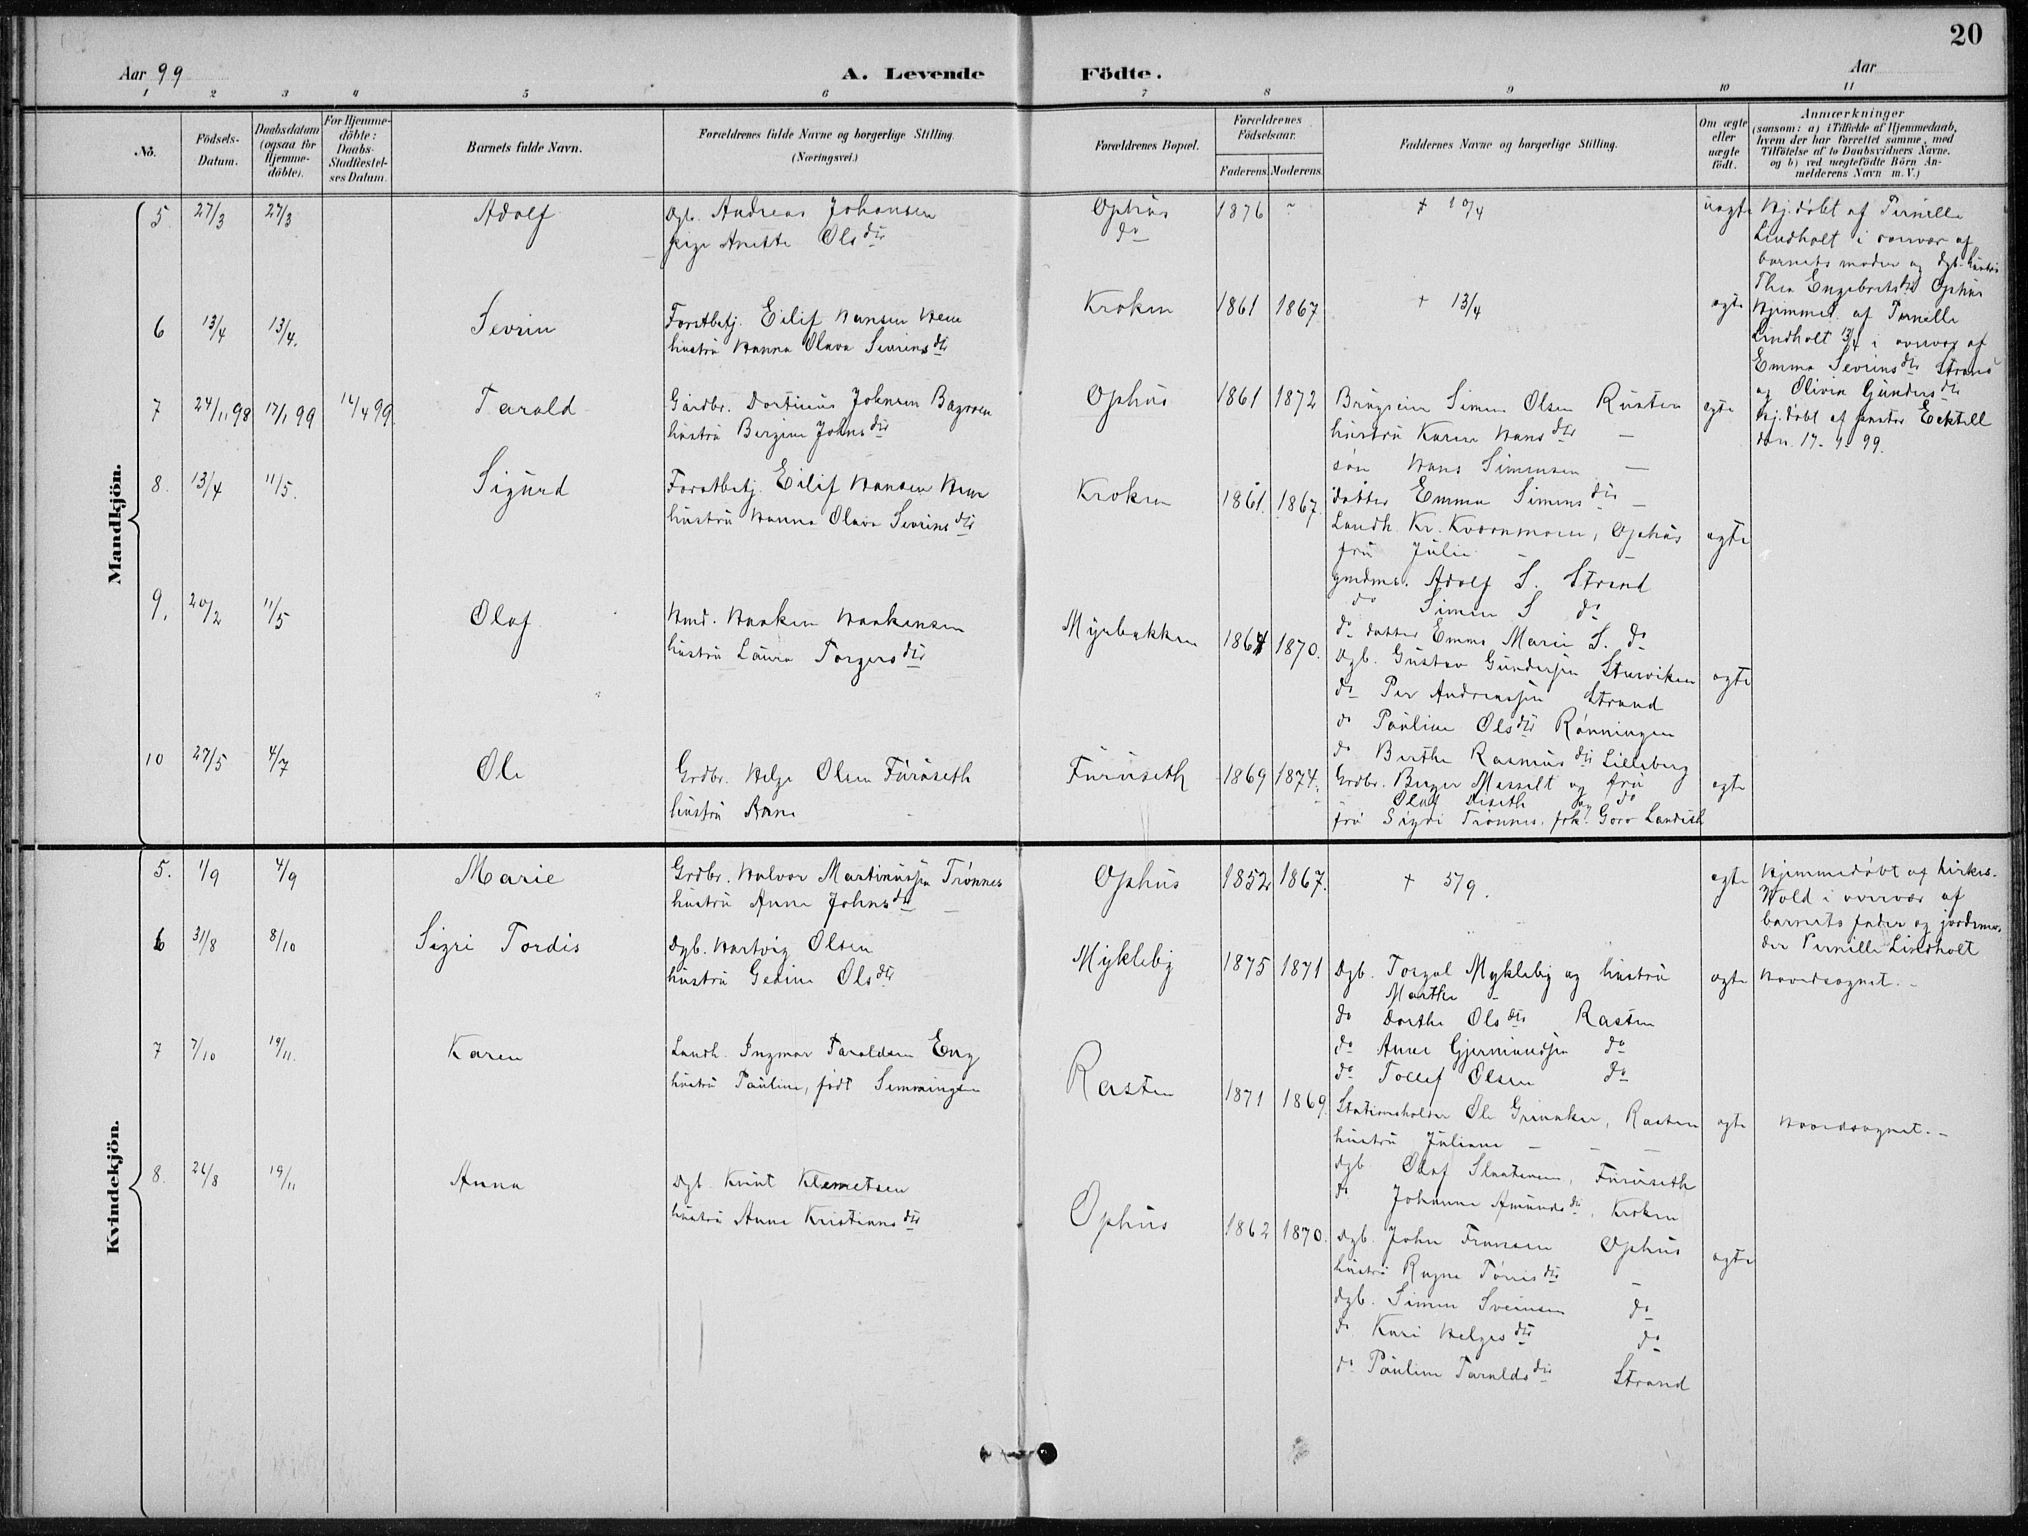 20
Aar 99
A. Levende Födte.
Aar
1 2 3 4 5 6 7 8 9 10 11
No.
Födsels-Datum.
Daabsdatum (ogsaa for Hjemme-döbte).
For Hjemme-döbte: Daabs-Stadfæstel-ses Datum.
Barnets fulde Navn.
Forældrenes fulde Navne og borgerlige Stilling.
(Næringsvei.)
Forældrenes Bopæl.
Forældrenes Födselsaar.
Faderens. Moderens.
Faddernes Navne og borgerlige Stilling.
Om ægte eller uægte födt.
Anmærkninger
(saasom: a) i Tilfælde af Hjemmedaab,
hvem der har forrettet samme, med
Tilföielse af to Daabsvidners Navne.
og b) ved uægtefödte Börn An-
melderens Navn m. V.)
Mandkjön.
5 27/3 27/3 Adolf
Dgb. Andreas Johansen
pige Anette Olsdtr
Ophus
do
1876 -
+ 10/4
uægte
Hj.døbt af Pernille
Lindholt i overvær af
barnets moder og dgb. hustru
Thea Engebretsdtr Ophus
6 13/4 13/4. Sevrin
Forstbetj. Eilif Hansen Hem
hustru Hanna Olava Sevrinsdtr
Kroken 1861 1867
+ 13/4
ægte
Hjemmed. af Pernille
Lindholt 13/4 i overvær af
Emma Sevrinsdtr Strand
og Olivia Gundersdtr
7 24/11 98 17/1 99 14/4 99 Tarald
Gårdbr. Dortinus Johnsen Bagroen
hustru Bergine Johnsdtr
Ophus 1861 1872
Brugseier Simen Olsen Rusten
hustru Karen Hansdtr —
søn Hans Simensen —
datter Emma Simensdtr —
ægte
Hj.døbt af pastor Ecktell
den 17-1-99.
8. 13/4 11/5. Sigurd
Forstbetj. Eilif Hansen Hem
hustru Hanna Olava Sevrinsdtr
Kroken 1861. 1867.
Landh. Kr. Kværnmoen, Ophus
fru Julie —
gmdm. Adolf S. Strand
do Simen S do
do datter Emma Marie S. do
ægte
9. 20/2 11/5 Olaf
Hmd. Haaken Haakensen
hustru Laura Torgersdtr
Myrbakken 1864 1870.
Dgb. Gustav Gundersen Sturviken
do Per Andreassen Strand
do Pauline Olsdtr Rønningen
do Berthe Rasmusdtr Lilleberg
ægte
10 27/5 4/7 Ole
Grdbr. Helge Olsen Furuseth
hustru Anne
Furuseth 1869 1874.
Grdbr. Birger Messelt og fru
Olaf Diseth og do
fru Sigri Trønnes. frk. Goro Landish
ægte
Kvindekjön.
5. 1/9 4/9 Marie
Grdbr. Halvor Martinussen Trønnes
hustru Anne Johnsdtr —
Ophus 1852 1867.
+ 5/9.
ægte
Hjemmedøbt af kirkes.
Wold i overvær af
barnets fader og jordemo-
der Pernille Lindholt
6 31/8 8/10 Sigri Tordis
Dgb. Hartvig Olsen
hustru Gedine Olsdtr
Mykleby 1875 1871
Dgb. Torgal Mykleby og hustru
Marthe —
do Dorthe Olsdtr Rasten
do Anne Gjermundsen do
do Tollef Olsen do
ægte Hovedsognet. -
7 7/10 19/11. Karen
Landh. Ingmar Taraldsen Eng
hustru Pauline, født Simmingsen
Rasten 1871 1869.
Stationsholder Ole Grinaker, Rasten
hustru Juliane — —
dgb. Olaf Slaatenem, Furuseth
do Johanne Amundsdtr, Kroken
ægte Hovedsognet. -
8. 26/8 19/11 Anna
Dgb. Knut Klemetsen
hustru Anne Kristiansdtr
Ophus 1862 1870.
Dgb. John Fransen Ophus
hustru Ragna Tønnisdtr —
dgb. Simen Sveinsen do
do Kari Helgesdtr do
do Pauline Taraldsdtr Strand
ægte